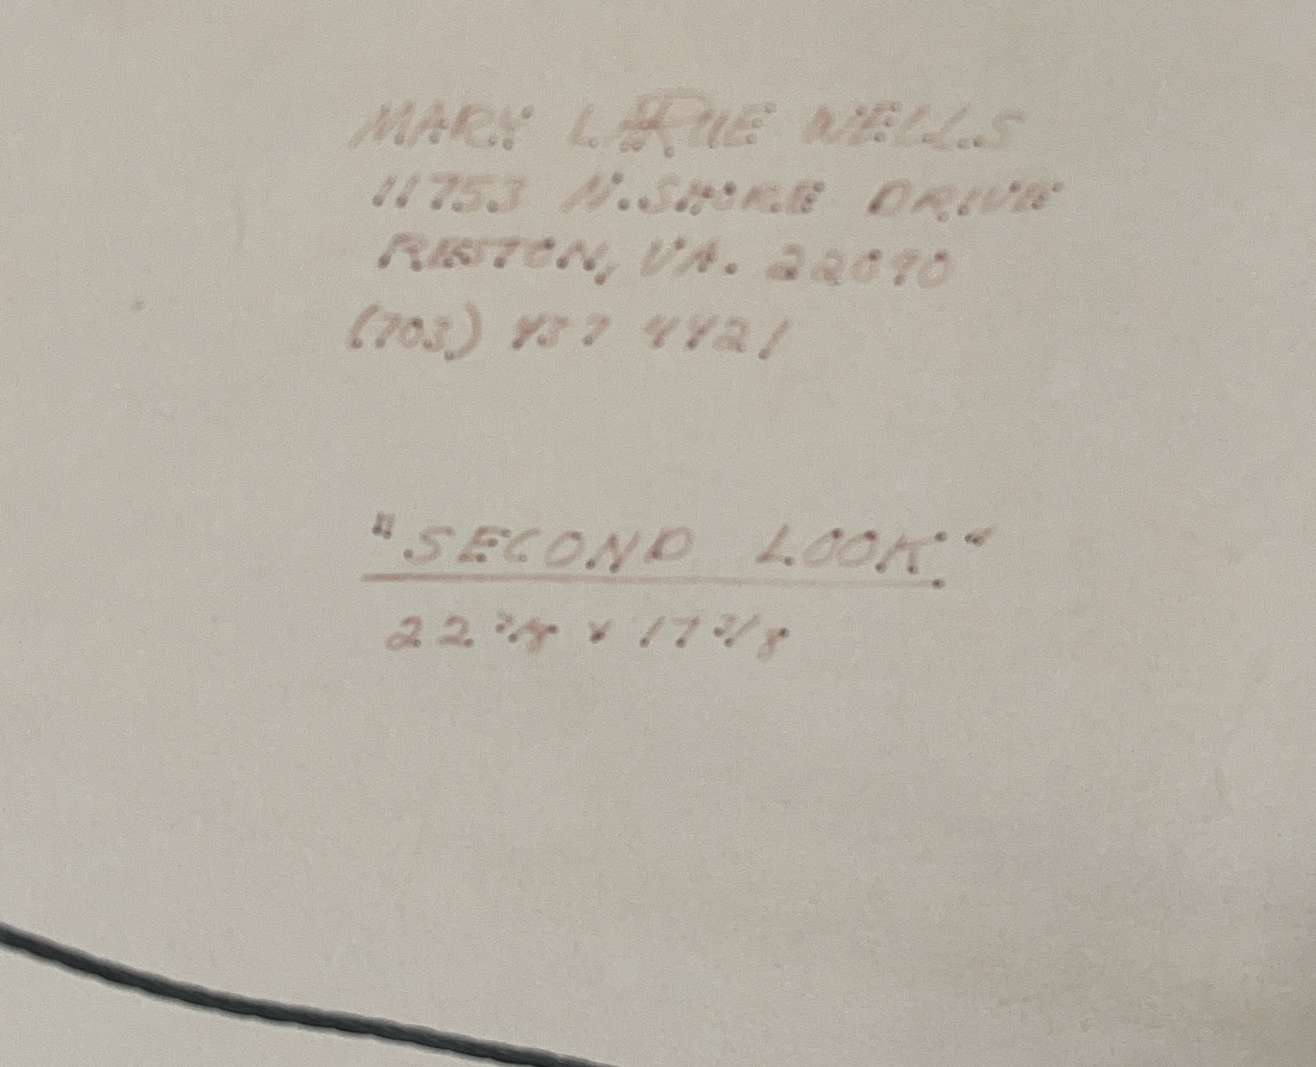 MARY LARUE WELLS
11753 N. SHORE DRIVE
RESTON, VA. 22090
(703) 437 4421
"SECOND LOOK"
22 3/8 x 17 3/8